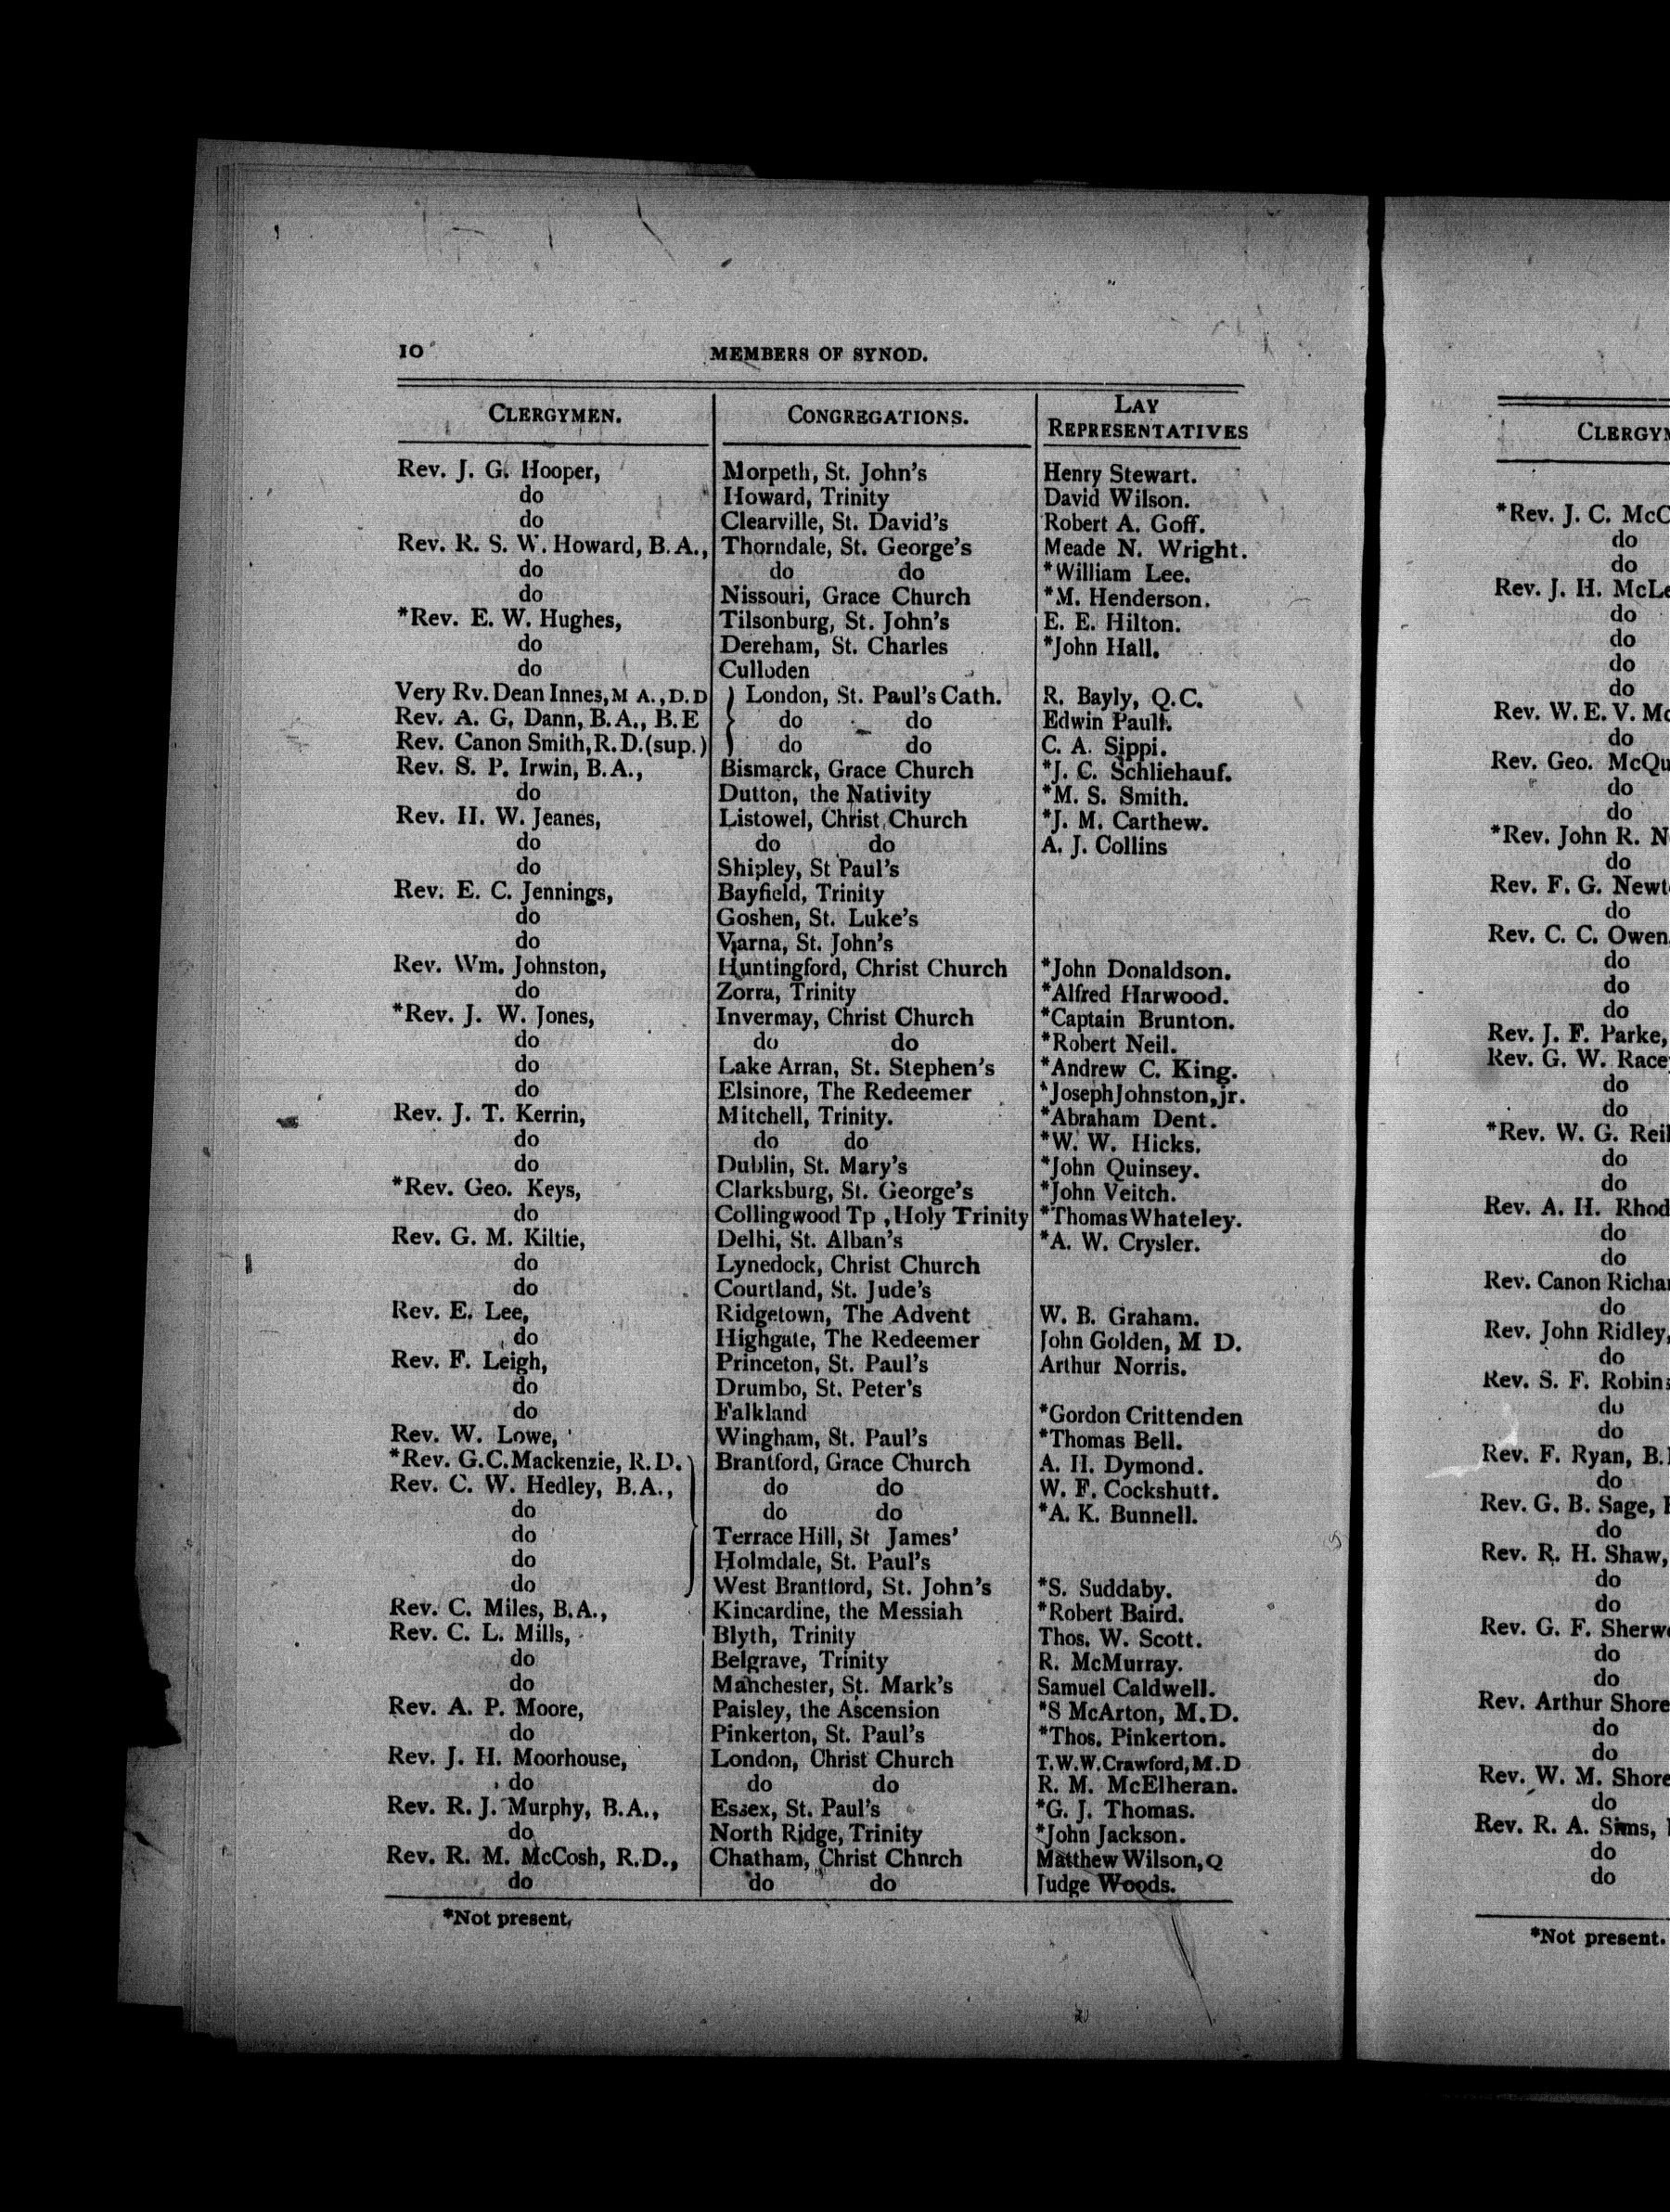 10 MEMBERS OF SYNOD.
CLERGYMEN. CONGREGATIONS. LAY REPRESENTATIVES
Rev. J. G. Hooper, Morpeth, St. John's Henry Stewart.
do Howard, Trinity David Wilson.
do Clearville, St. David's Robert A. Goff.
Rev. R. S. W. Howard, B.A., Thorndale, St. George's Meade N. Wright.
do do do *William Lee.
do Nissouri, Grace Church *M. Henderson.
*Rev. E. W. Hughes, Tilsonburg, St. John's E. E. Hilton.
do Dereham, St. Charles *John Hall.
do Culloden
Very Rv. Dean Innes, M A., D.D } London, St. Paul's Cath. R. Bayly, Q.C.
Rev. A. G. Dann, B.A., B.E do do Edwin Paull.
Rev. Canon Smith, R.D. (sup.) do do C. A. Sippi.
Rev. S. P. Irwin, B.A., Bismarck, Grace Church *J. C. Schliehauf.
do Dutton, the Nativity *M. S. Smith.
Rev. H. W. Jeanes, Listowel, Christ Church *J. M. Carthew.
do do do A. J. Collins
do Shipley, St Paul's
Rev. E. C. Jennings, Bayfield, Trinity
do Goshen, St. Luke's
do Varna, St. John's
Rev. Wm. Johnston, Huntingford, Christ Church *John Donaldson.
do Zorra, Trinity *Alfred Harwood.
*Rev. J. W. Jones, Invermay, Christ Church *Captain Brunton.
do do do *Robert Neil.
do Lake Arran, St. Stephen's *Andrew C. King.
do Elsinore, The Redeemer *Joseph Johnston, jr.
Rev. J. T. Kerrin, Mitchell, Trinity. *Abraham Dent.
do do do *W. W. Hicks.
do Dublin, St. Mary's *John Quinsey.
*Rev. Geo. Keys, Clarksburg, St. George's *John Veitch.
do Collingwood Tp , Holy Trinity *Thomas Whateley.
Rev. G. M. Kiltie, Delhi, St. Alban's *A. W. Crysler.
do Lynedock, Christ Church
do Courtland, St. Jude's
Rev. E. Lee, Ridgetown, The Advent W. B. Graham.
do Highgate, The Redeemer John Golden, M D.
Rev. F. Leigh, Princeton, St. Paul's Arthur Norris.
do Drumbo, St. Peter's
do Falkland *Gordon Crittenden
Rev. W. Lowe, Wingham, St. Paul's *Thomas Bell.
*Rev. G.C. Mackenzie, R.D. } Brantford, Grace Church A. H. Dymond.
Rev. C. W. Hedley, B.A., do do W. F. Cockshutt.
do do do *A. K. Bunnell.
do Terrace Hill, St James'
do Holmdale, St. Paul's
do West Brantford, St. John's *S. Suddaby.
Rev. C. Miles, B.A., Kincardine, the Messiah *Robert Baird.
Rev. C. L. Mills, Blyth, Trinity Thos. W. Scott.
do Belgrave, Trinity R. McMurray.
do Manchester, St. Mark's Samuel Caldwell.
Rev. A. P. Moore, Paisley, the Ascension *S McArton, M.D.
do Pinkerton, St. Paul's *Thos. Pinkerton.
Rev. J. H. Moorhouse, London, Christ Church T.W.W. Crawford, M.D
do do do R. M. McElheran.
Rev. R. J. Murphy, B.A., Essex, St. Paul's *G. J. Thomas.
do North Ridge, Trinity *John Jackson.
Rev. R. M. McCosh, R.D., Chatham, Christ Chnrch Matthew Wilson, Q
do do do Judge Woods.
*Not present,
CLERGYM
*Rev. J. C. McC
do
do
Rev. J. H. McLe
do
do
do
do
Rev. W. E. V. Mc
do
Rev. Geo. McQu
do
do
*Rev. John R. N
do
Rev. F. G. Newt
do
Rev. C. C. Owen
do
do
do
Rev. J. F. Parke,
Rev. G. W. Race
do
do
*Rev. W. G. Reil
do
do
Rev. A. H. Rhod
do
do
Rev. Canon Richar
do
Rev. John Ridley,
do
Rev. S. F. Robins
do
do
Rev. F. Ryan, B.
do
Rev. G. B. Sage,
do
Rev. R. H. Shaw,
do
do
Rev. G. F. Sherwo
do
do
Rev. Arthur Shore
do
do
Rev. W. M. Shore
do
Rev. R. A. Sims,
do
do
*Not present.